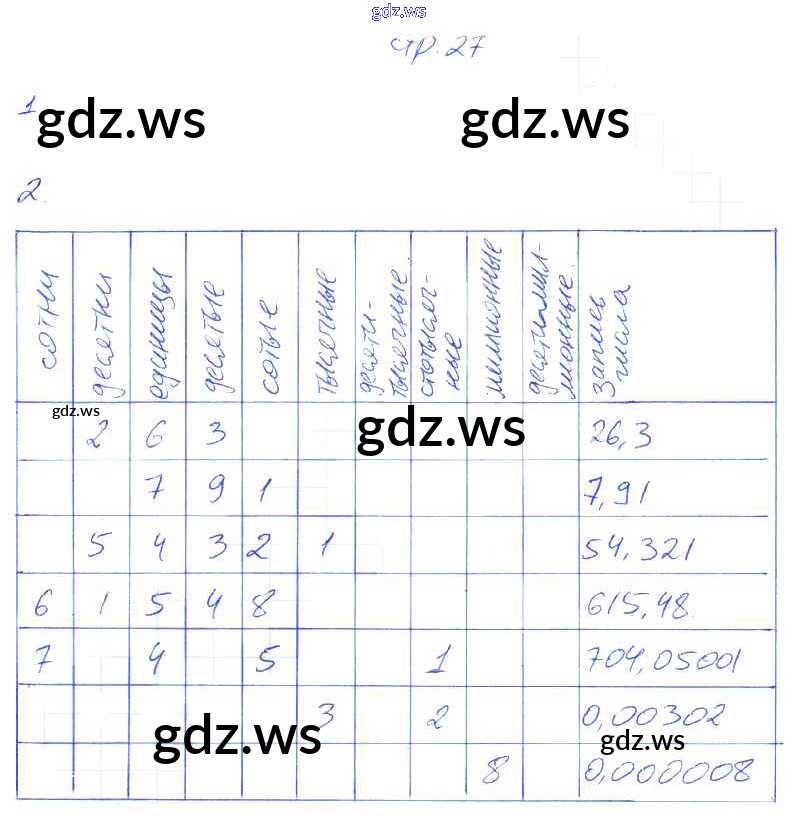 gdz.ws
стр. 27
1
gdz.ws gdz.ws
2.
сотни десятки единицы десятые сотые тысячные десяти-тысячные стотысяч-ные миллионные десятимил-лионные запись числа
gdz.ws
2 6 3 gdz.ws 26,3
7 9 1 7,91
5 4 3 2 1 54,321
6 1 5 4 8 615,48
7 4 5 1 704,05001
3 2 0,00302
gdz.ws gdz.ws
8 0,000008